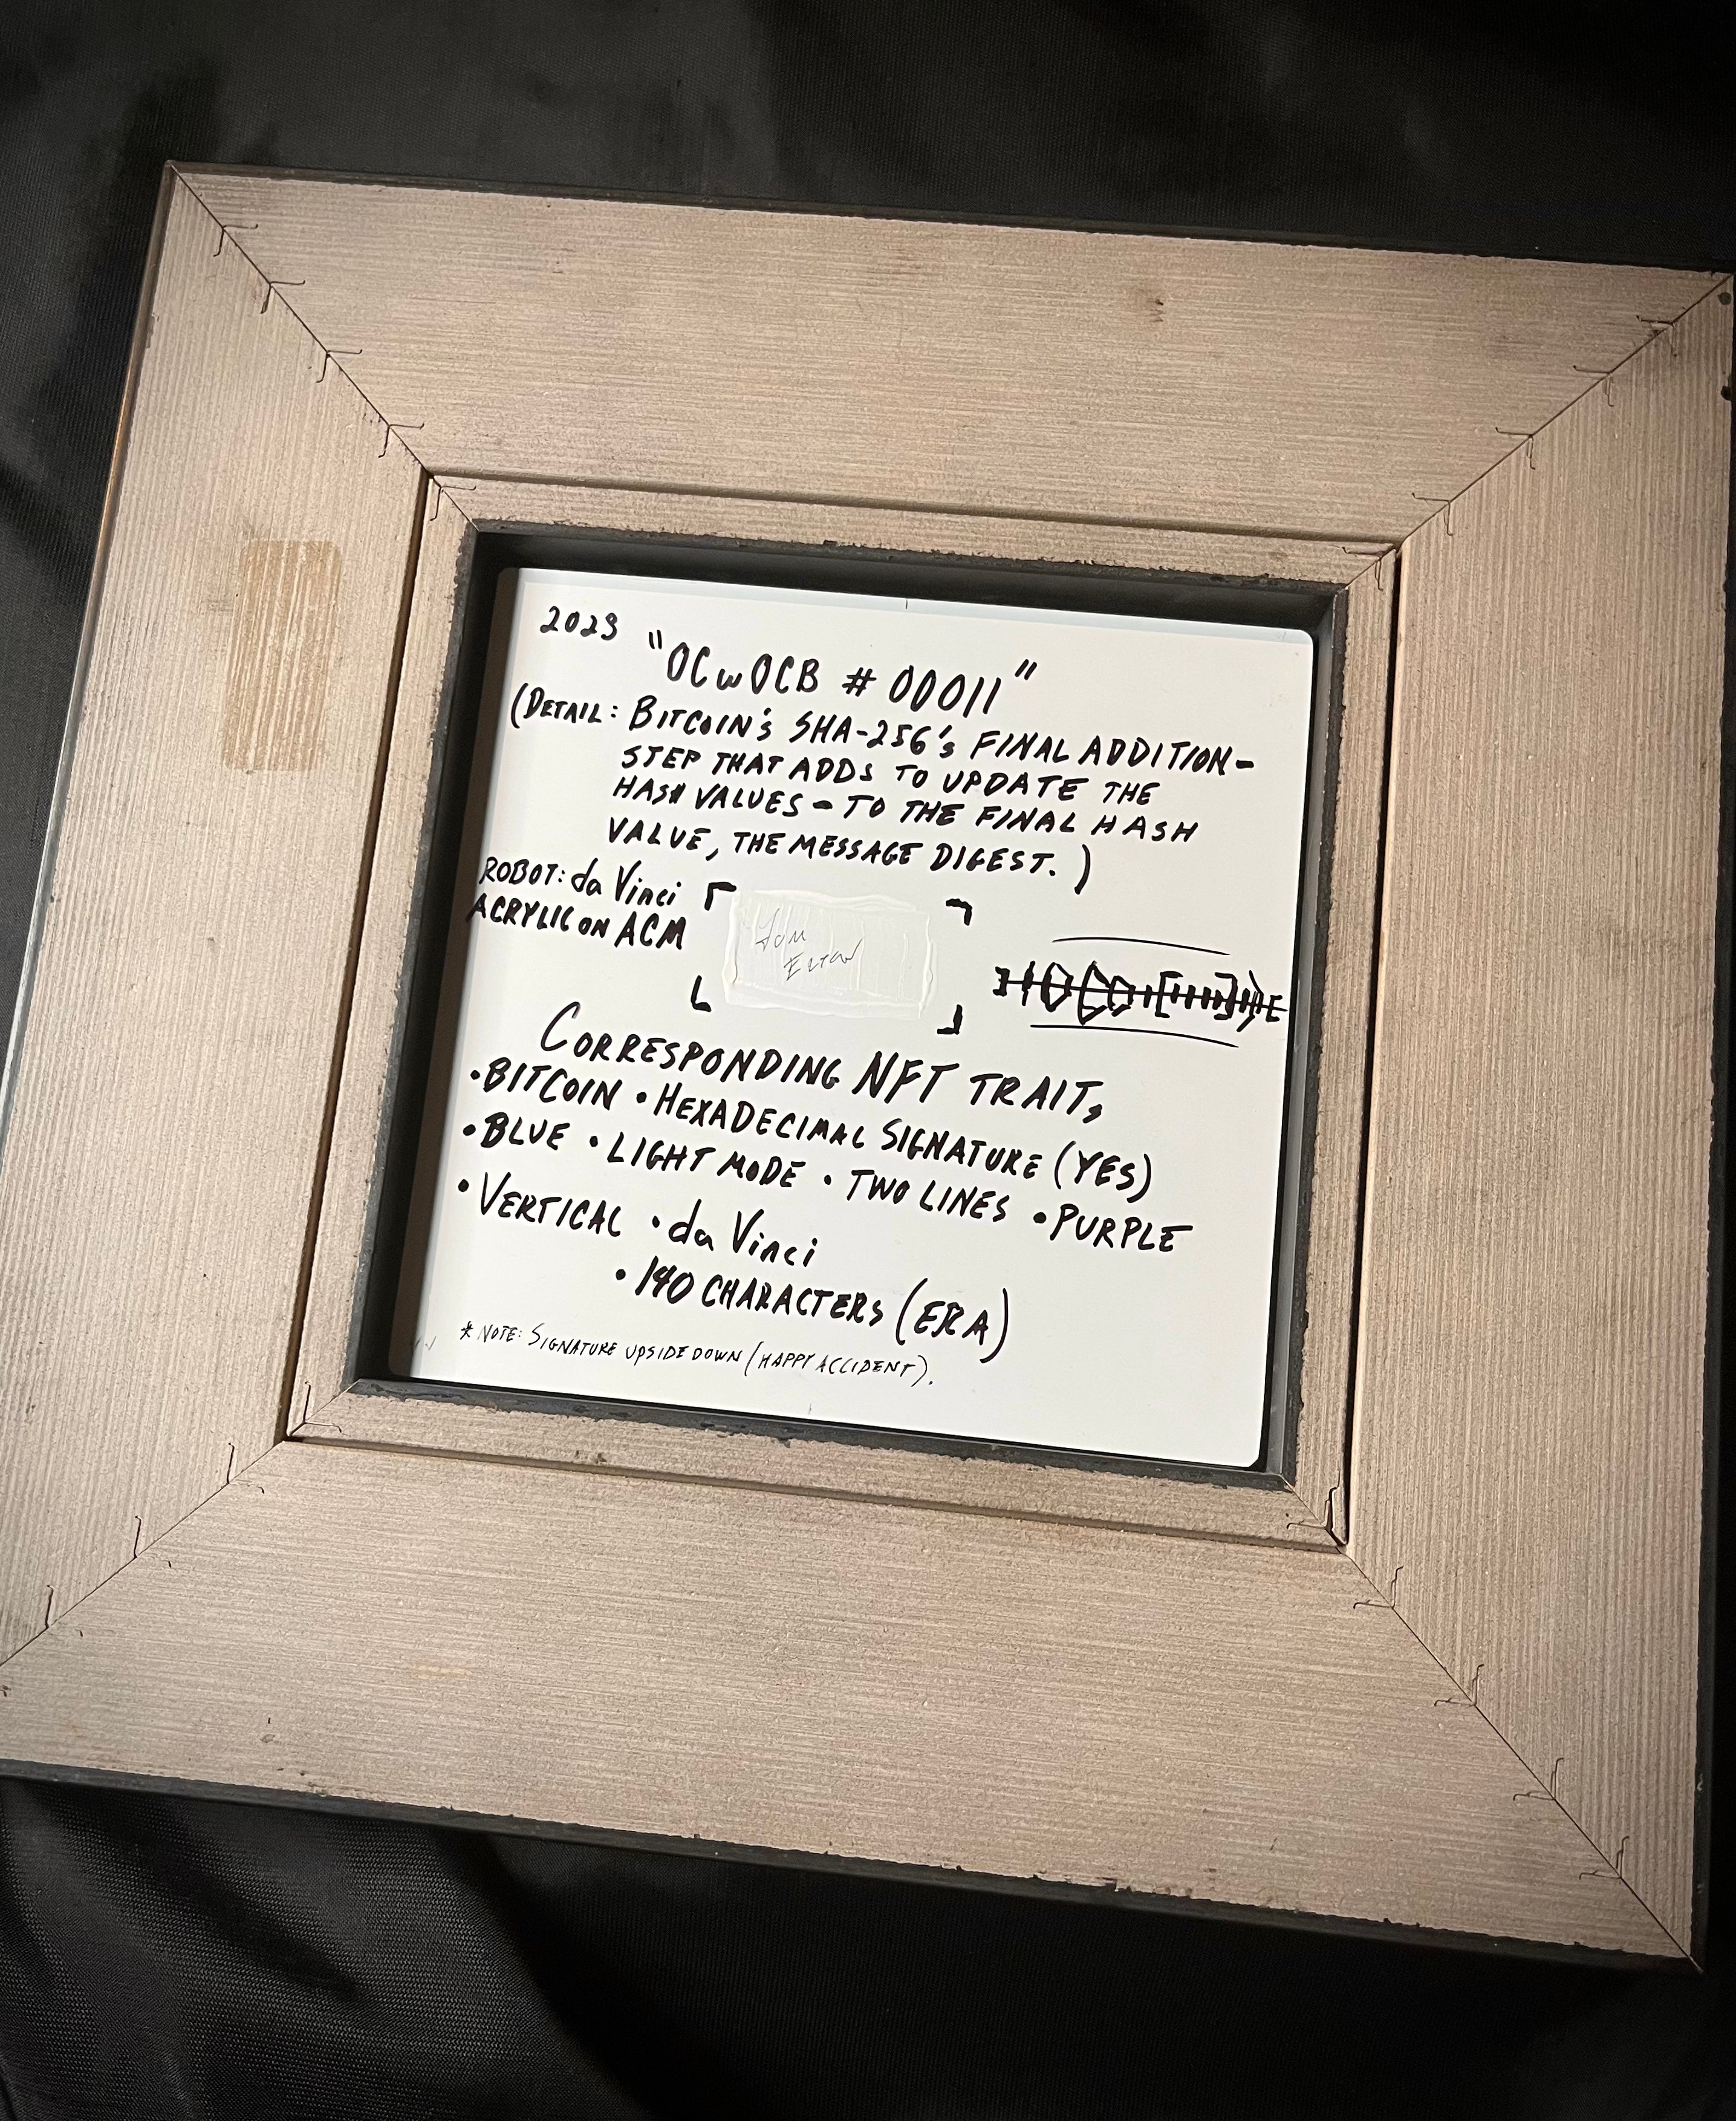 2023
"OCwOCB #00011"
(DETAIL: BITCOIN'S SHA-256'S FINAL ADDITION-
STEP THAT ADDS TO UPDATE THE
HASH VALUES - TO THE FINAL HASH
VALUE, THE MESSAGE DIGEST.)
ROBOT: da Vinci
ACRYLIC ON ACM
CORRESPONDING NFT TRAITS
• BITCOIN • HEXADECIMAL SIGNATURE (YES)
• BLUE • LIGHT MODE • TWO LINES • PURPLE
• VERTICAL • da Vinci
• 140 CHARACTERS (ERA)
* NOTE: SIGNATURE UPSIDE DOWN (HAPPY ACCIDENT).